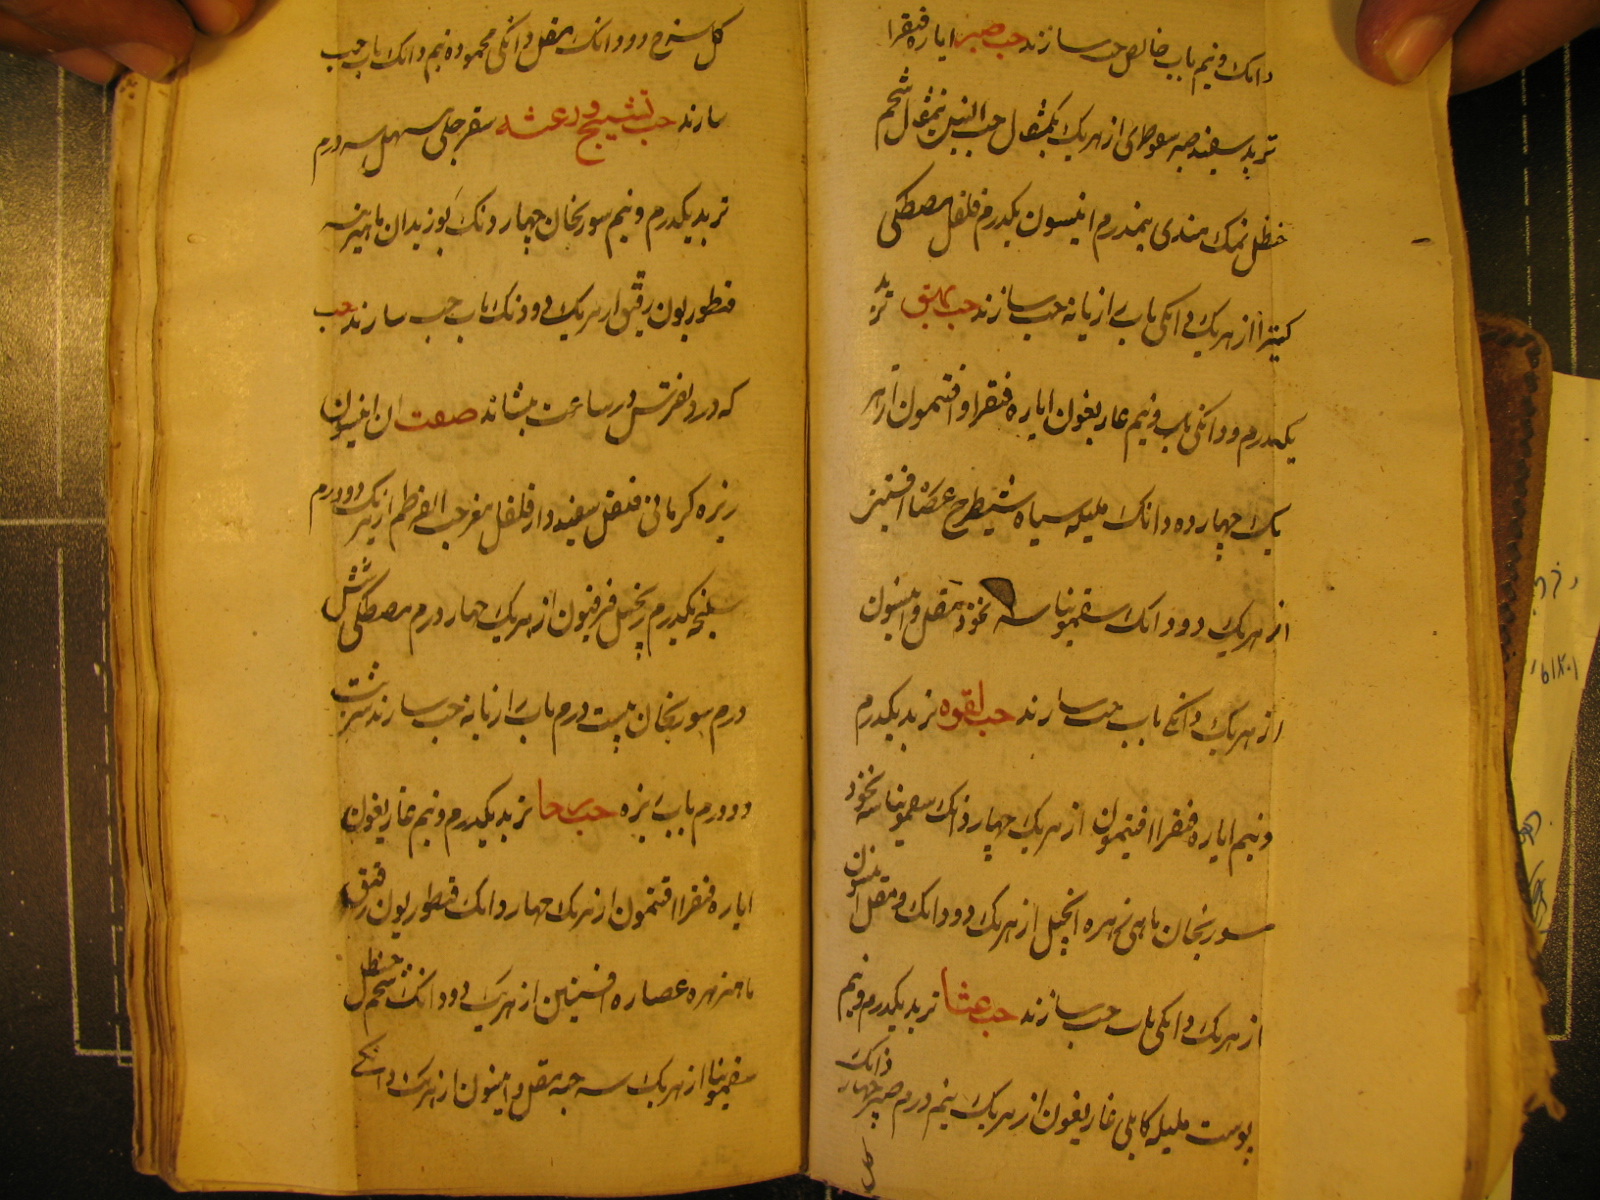 دانک و نیم باب خالص حب سازند حب صبر ایاره فیقرا
تربد سفید صبر سقوطری از هر یک یکمثقال حب النیل نیمثقال شحم
حنظل نمک هندی نیمدرم انیسون یکدرم فلفل مصطکی
کتیرا از هر یک دانکی باب رازیانه حب سازند حب بهق تربد
یکدرم و دانکی باب و نیم غاریقون ایاره فیقرا و افتیمون از هر
یک چهار ده دانک هلیله سیاه شیطرج عصاه افسنتین
از هر یک دو دانک سقمونیا سه نخود مقل و انیسون
از هر یک دانکی باب حب سازند حب لقوه تربد یکدرم
و نیم ایاره فیقرا افتیمون از هر یک چهار دانک سقمونیا سه نخود
سورنجان ماهی زهره از هر یک دو دانک و مقل انیسون
از هر یک دانکی باب حب سازند حب عشا تربد یکدرم و نیم
پوست هلیله کابلی غاریقون از هر یک نیم درم صبر چهار دانک
کل
کل سرخ دو دانک مقل دانکی محموده نیم دانک باب حب
سازند حب تشنج و رعشه سفرجلی مسهل سه درم
تربد یکدرم و نیم سورنجان چهار دنک بوزیدان ماهیزهره
قنطوریون رقیق از هر یک دو دنک باب حب سازند حب
که درد نقرس در ساعت بنشاند صفت ان انیسون
زیره کرمانی فلفل سفید دارفلفل مغز حب القرطم از هر یک دو درم
یکدرم زنجبیل فرفیون از هر یک چهار درم مصطکی شش
درم سورنجان بیست درم باب رازیانه حب سازند شربت
دو درم باب زیره حب تربد یکدرم و نیم غاریقون
ایاره فیقرا افتیمون از هر یک چهار دانک قنطوریون رقیق
ماهیزهره عصاره افسنتین از هر یک دو دانک شحم حنظل
سقمونیا از هر یک سه حبه مقل و انیسون از هر یک دانکی